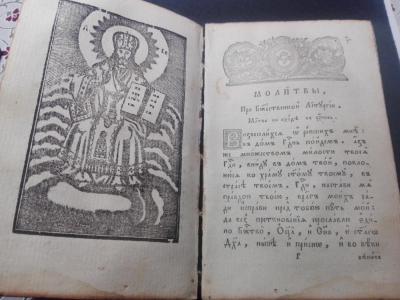 МОЛИТВЫ,
При Бж҃ественной Лїтургїи.
Возвеселихся ѡ рекшихъ мнѣ:
въ домъ Гдⷭ҇нь пойдемъ. азъ
множествомъ милости твоея
Гдⷭ҇и, вниду в домъ твой, покло-
ко храму ст҃ому твоему, въ
страсѣ твоемъ. Гдⷭ҇и, настави мѧ
правдою твоею, врагъ моихъ ра-
ди исправи предъ тобою путь мой
да без преткновенїѧ прославлю еди-
но Бжⷭ҇тво, Оц҃а, и Сн҃а, и ст҃аго
Дх҃а, нынѣ и присно, и во вѣки